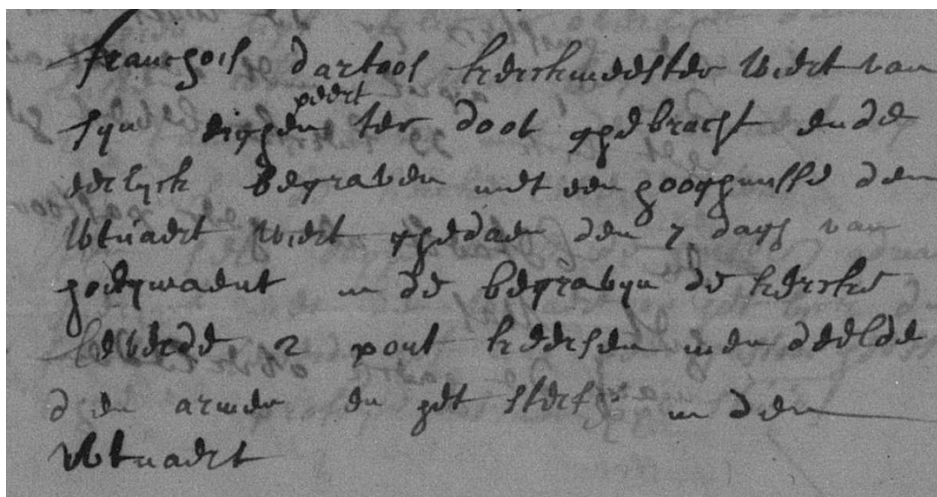 franchois dartois kerckmeester wiert van
syn eijghen peert ter doot ghebracht ende
eerlyck begraven met een hooghmisse den
wtvaert wiert ghedaen den 7 dagh van
hoeymaent in de begravyn de kercke
leverde 2 pont keersen men deelde
den armen en het sterfhs in den
wtvaert